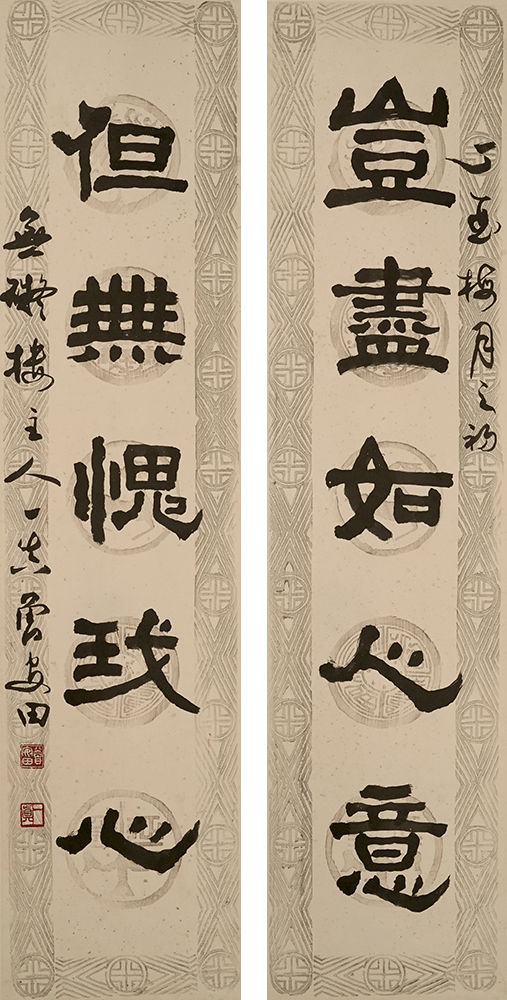 丁酉梅月之初
豈盡如心意
但無愧我心
無礙樓主人一真曾安田
一真